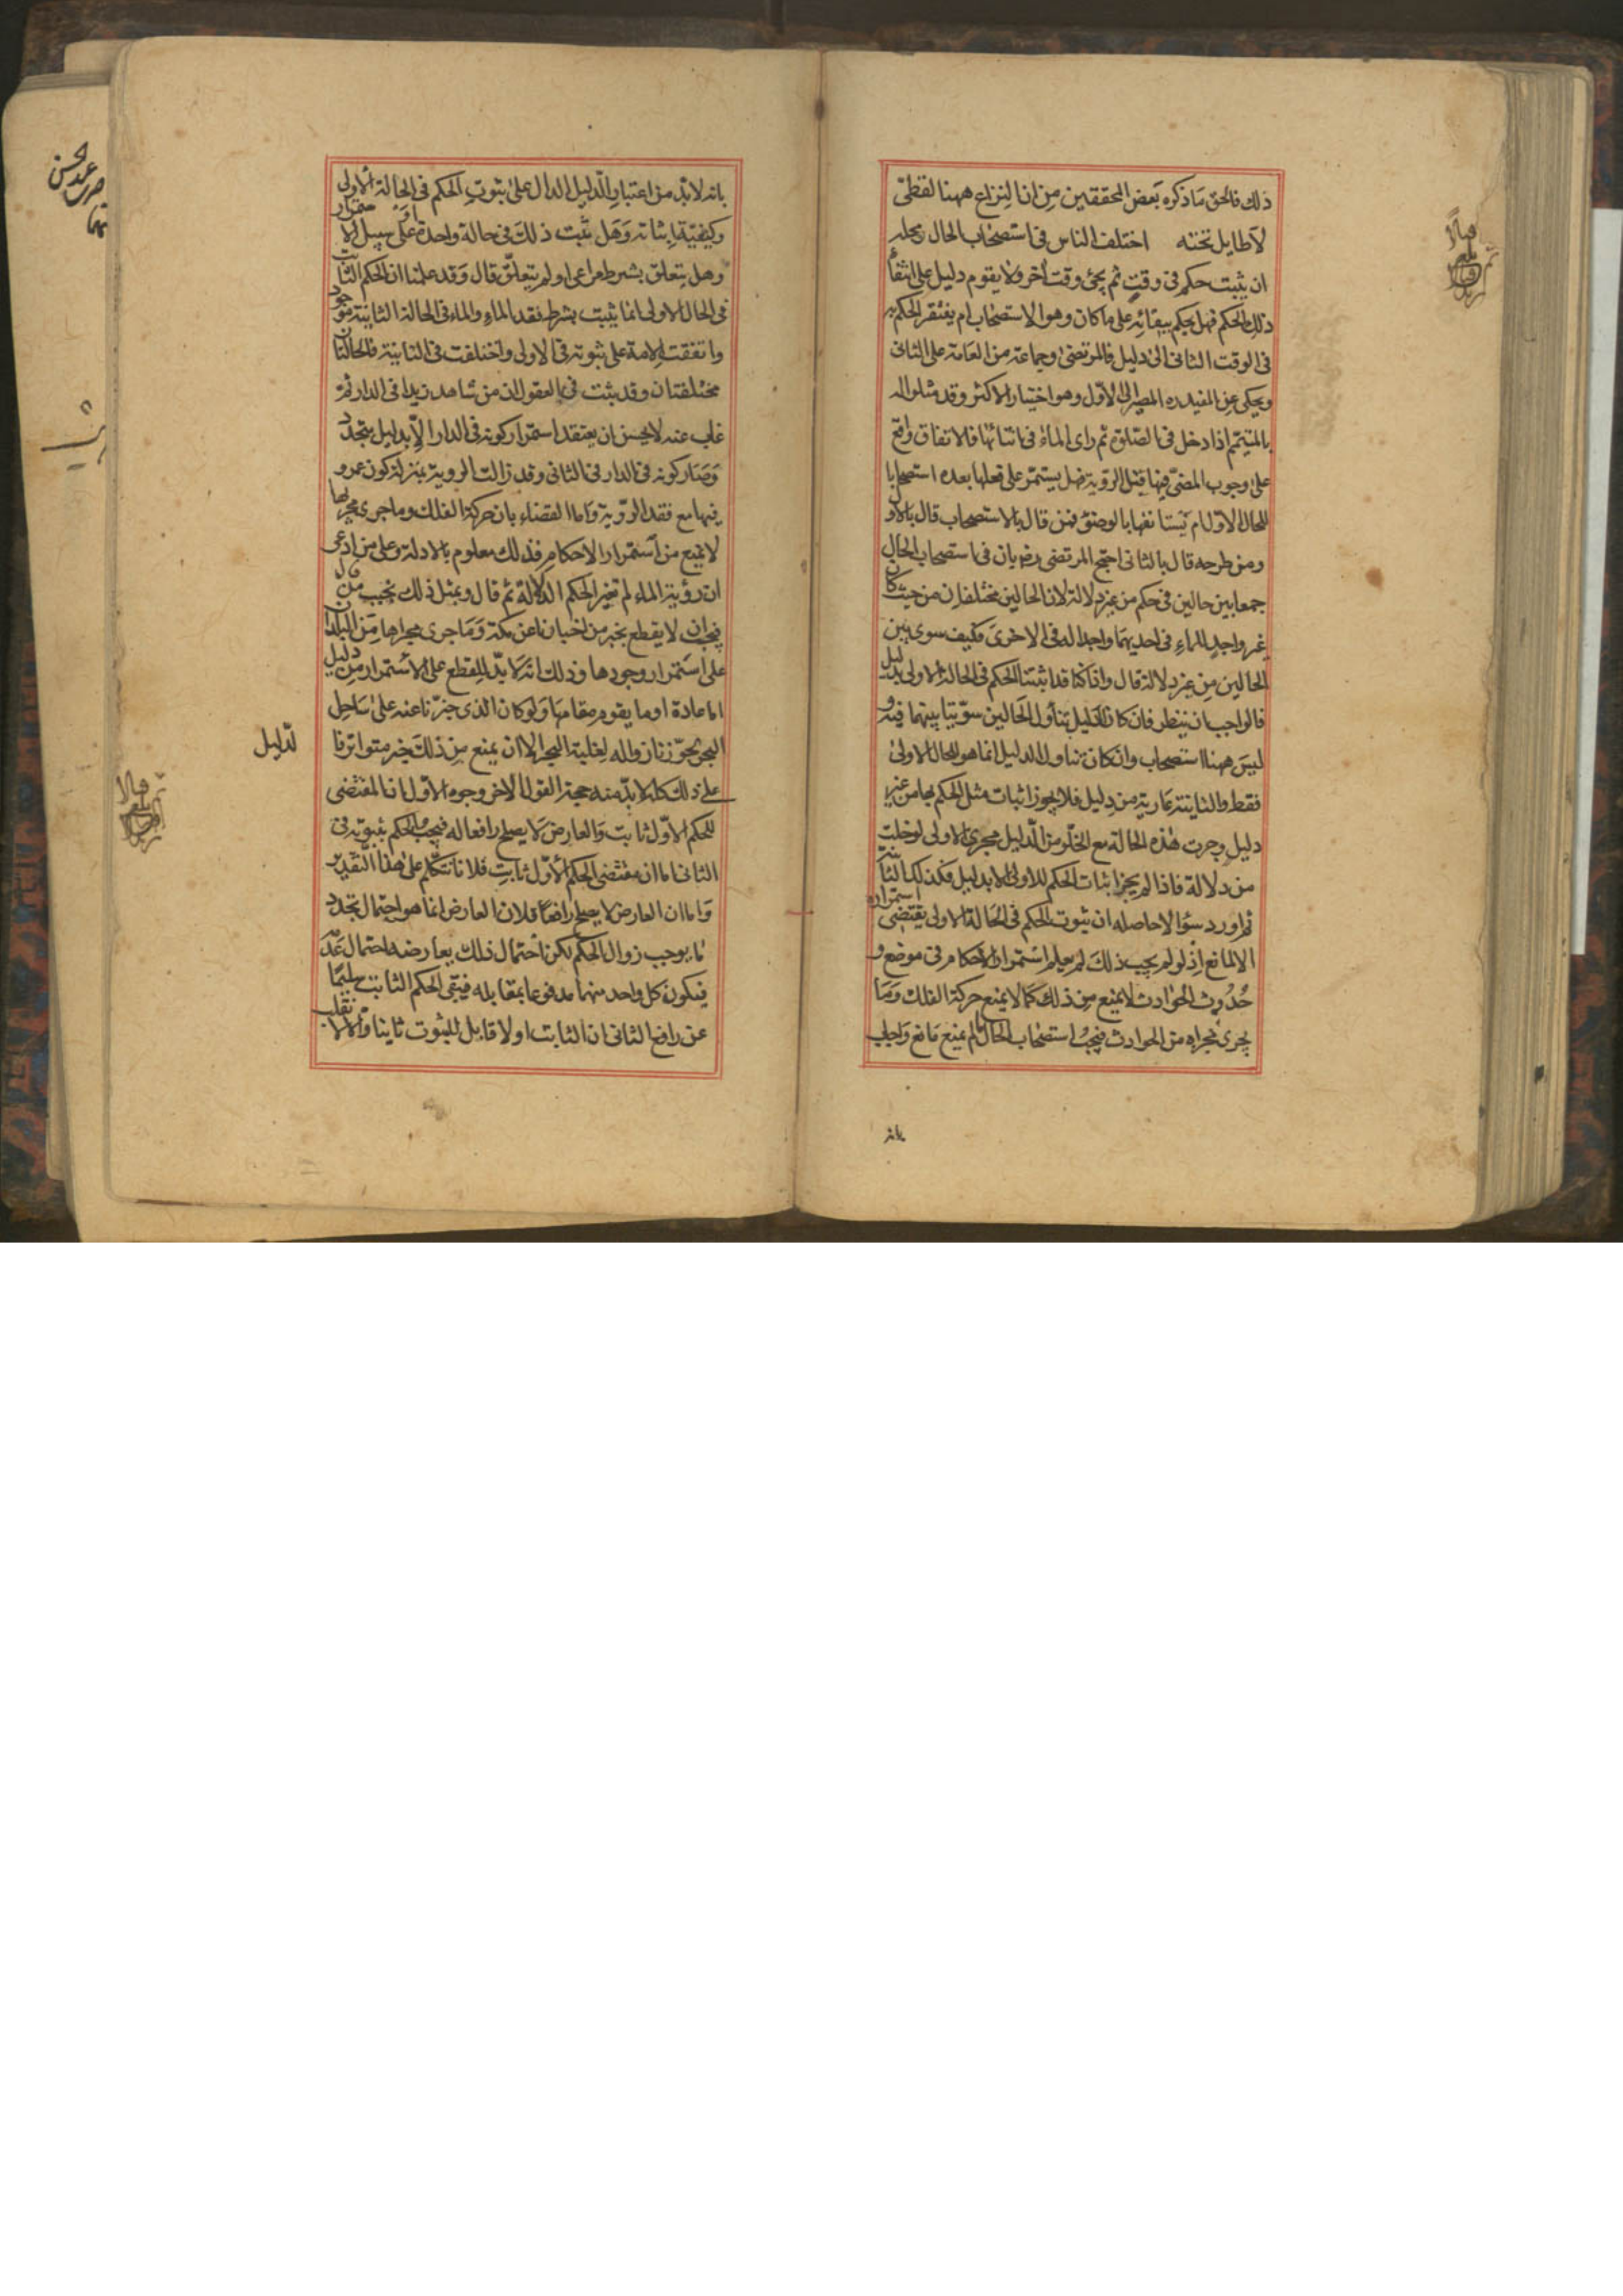 ذلك فالحق ما ذكره بعض المحققين من ان النزاع ههنا لفظى
لا طايل تحته اختلف الناس فى استصحاب الحال ومحله
ان يثبت حكم فى وقت ثم يجئ وقت آخر ولا يقوم دليل على انتفاء
ذلك الحكم فهل يحكم ببقائه على ما كان وهو الاستصحاب ام يفتقر الحكم به
فى الوقت الثانى الى دليل فالمرتضى وجماعة من العامة على الثانى
ويحكى عن المفيد ره المصير الى الاول وهو اختيار الاكثر وقد مثلوا له
بالمتيمم اذا دخل فى الصلوة ثم راى الماء فى اثنائها فالاتفاق واقع
على وجوب المضى فيها قبل الروية فهل يستمر على فعلها بعده استصحابا
للحال الاول ام يستانفها بالوضوء فمن قال بالاستصحاب قال بالاول
ومن طرحه قال بالثانى احتج المرتضى رضه بان فى استصحاب الحال
جمعا بين حالين فى حكم من غير دلالة لان الحالين مختلفان من حيث كان
غير واجد للماء فى احديهما واجدا له فى الاخرى فكيف سوى بين
الحالين من غير دلالة قال واذا كنا قد اثبتنا الحكم فى الحالة الاولى بدليل
فالواجب ان ينظر فان كان الدليل يتناول الحالين سوينا بينهما فيه و
ليس ههنا استصحاب وان كان تناول الدليل انما هو للحال الاولى
فقط والثانية عارية من دليل فلا يجوز اثبات مثل الحكم لها من غير
دليل وجرت هذه الحالة مع الخلو من الدليل مجرى الاولى لو خلت
من دلالة فاذا لم يجز اثبات الحكم للاولى الا بدليل فكذلك الثانية
ثم اورد سؤالا حاصله ان ثبوت الحكم فى الحالة الاولى يقتضى استمراره
الا لمانع اذ لو لم يجب ذلك لم يعلم استمرار الاحكام فى موضع و
حدوث الحوادث لا يمنع من ذلك كما لا يمنع حركة الفلك وما
يجرى مجراه من الحوادث فيجب استصحاب الحال ما لم يمنع مانع واجاب
بانه
بانه لا بد من اعتبار الدليل الدال على ثبوت الحكم فى الحالة الاولى
وكيفية اثباته وهل يثبت ذلك فى حالة واحدة او على سبيل الاستمرار
وهل يتعلق بشرط مراعى او لم يتعلق قال وقد علمنا ان الحكم الثابت
فى الحال الاولى انما يثبت بشرط فقد الماء والماء فى الحالة الثانية موجود
واتفقت الامة على ثبوته فى الاولى واختلفت فى الثانية فالحالتان
مختلفتان وقد ثبت فى العقول ان من شاهد زيدا فى الدار ثم
غاب عنه لا يحسن ان يعتقد استمرار كونه فى الدار الا بدليل يتجدد
وصار كونه فى الدار فى الثانى وقد زالت الروية بمنزلة كون عمرو
فيها مع فقد الروية واما القضاء بان حركة الفلك وما جرى مجراها
لا تمنع من استمرار الاحكام فذلك معلوم بالادلة وعلى من ادعى
ان رؤية الماء لم تغير الحكم الدلالة ثم قال وبمثل ذلك نجيب من قال
فيجب ان لا يقطع بخبر من اخبرنا عن مكة وما جرى مجراها من البلدان
على استمرار وجودها وذلك انه لا بد للقطع على الاستمرار من دليل
اما عادة او ما يقوم مقامها ولو كان الذى خبرنا عنه على ساحل
البحر نجوز زواله لغلبة البحر الا ان يمنع من ذلك خبر متواتر فا
لدليل
على ذلك كله لا بد منه حجة القول الاخر وجوه الاول ان المقتضى
للحكم الاول ثابت والعارض لا يصلح رافعا له فيجب الحكم بثبوته فى
الثانى اما ان مقتضى الحكم الاول ثابت فلانا نتكلم على هذا التقدير
واما ان العارض لا يصلح رافعا فلان العارض انما هو احتمال تجدد
ما يوجب زوال الحكم لكن احتمال ذلك يعارضه احتمال عدمه
فيكون كل واحد منهما مدفوعا بمقابله فيبقى الحكم الثابت سليما
عن رافع الثانى ان الثابت اولا قابل للثبوت ثانيا والا لانقلب